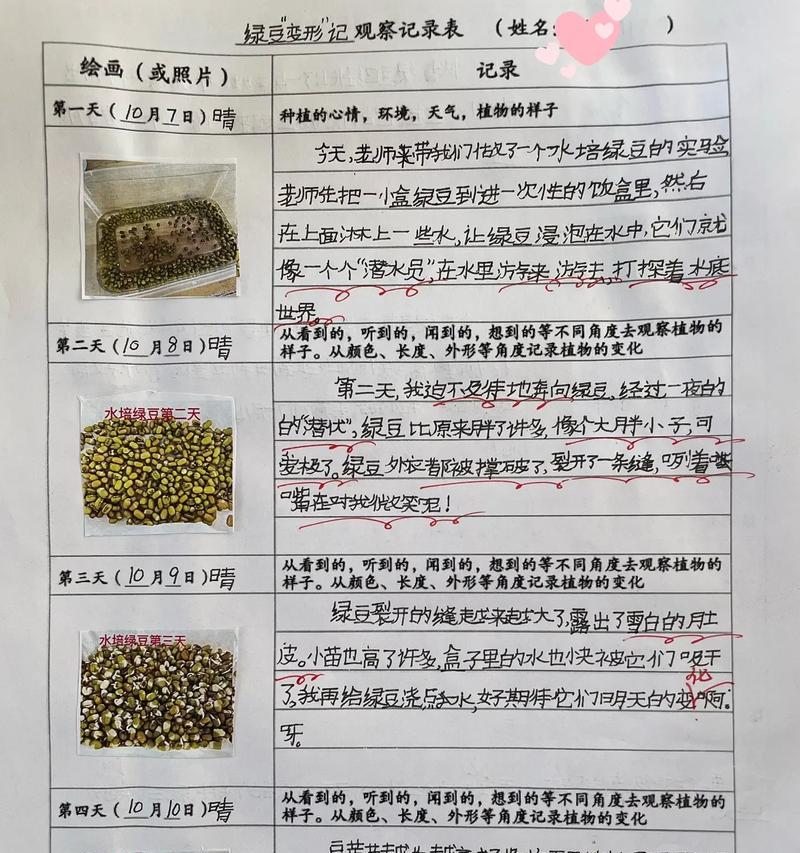 绿豆"变形"记 观察记录表 （姓名: ）
绘画（或照片） 记录
第一天（10月7日）晴 种植的心情，环境，天气，植物的样子
今天,老师来带我们做了一个水培绿豆的实验
老师先把一小盒绿豆到进一次性的饭盒里,然后
在上面沐上一些水,让绿豆浸泡在水中,它们就
像一个个"潜水员",在水里游来游去,打探着水底
世界。
第二天（10月8日）晴 从看到的，听到的，闻到的，想到的等不同角度去观察植物的
样子。从颜色、长度、外形等角度记录植物的变化
水培绿豆第二天
第二天,我迫不及待地奔向绿豆,经过一夜的
的"潜伏",绿豆比原来胖了许多,像个大胖小子,可
爱极了。绿豆外皮都被撑破了,裂开了一条缝,咧着嘴
嘴在对我微笑呢!
第三天（10月9日）晴 从看到的，听到的，闻到的，想到的等不同角度去观察植物的
样子。从颜色、长度、外形等角度记录植物的变化
水培绿豆第三天
绿豆裂开的缝越来越大了,露出了雪白的肚
皮。小苗也高了许多,盒子里的水也快被它们吸干
化
了,我再给绿豆浇点水,好期待它们明天的变啊。
牙。
第四天（10月10日）晴 从看到的，听到的，闻到的，想到的等不同角度去观察植物的
样子。从颜色、长度、外形等角度记录植物的变化